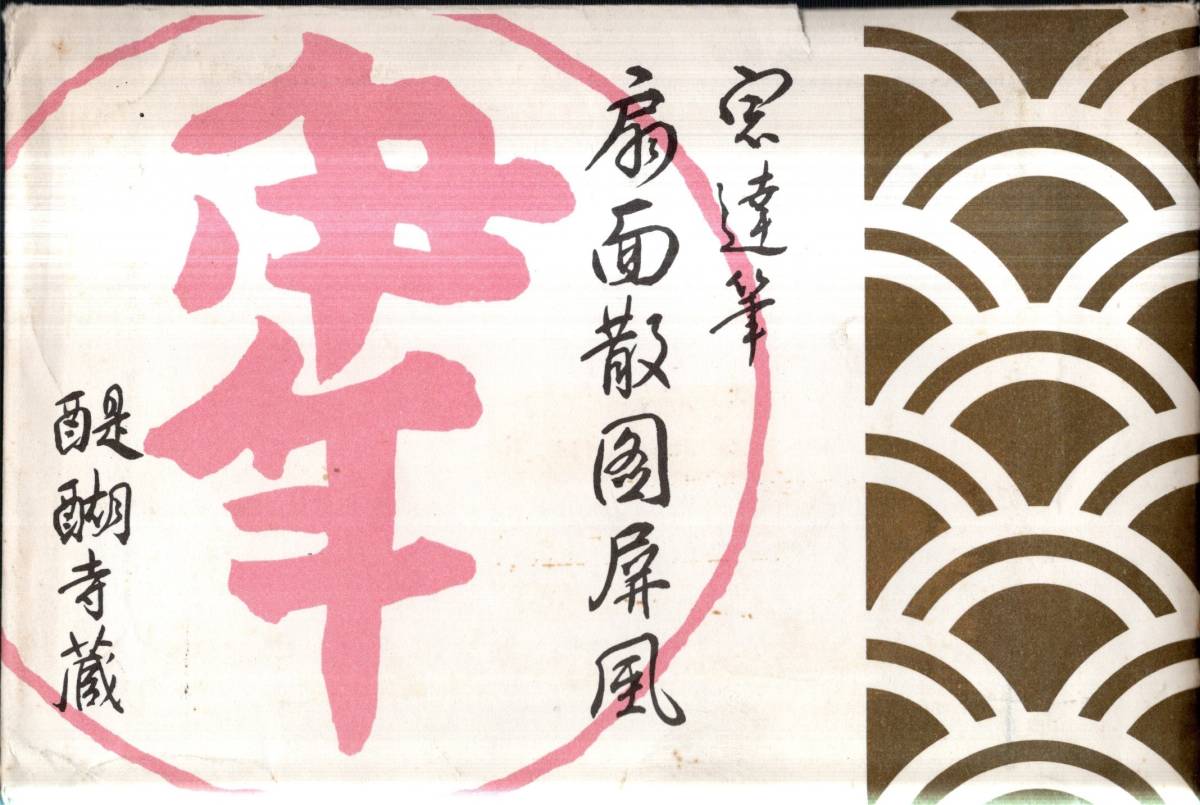 宗達筆
扇面散図屏風
伊年
醍醐寺蔵